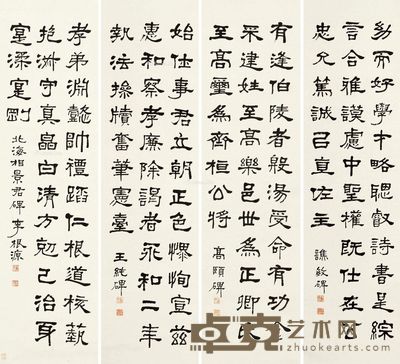 幼而好學才略聰叡詩書是綜
言合雅謨慮中聖權既仕在公
忠允篤誠引直佐主 譙敏碑
有逢伯陵者殷湯受命有功食
采建姓至高樂邑世為正卿
至高璽為齊桓公將 高頤碑
始仕事君立朝正色恂宣茲
惠和察孝廉除謁者和二年
執法操牘奮筆憲臺 王純碑
孝弟淵懿帥禮蹈仁根道核藝
抱淑守真皛白清方剋己治身
寔渘寔剛 北海相景君碑 李根源
卓克艺术网